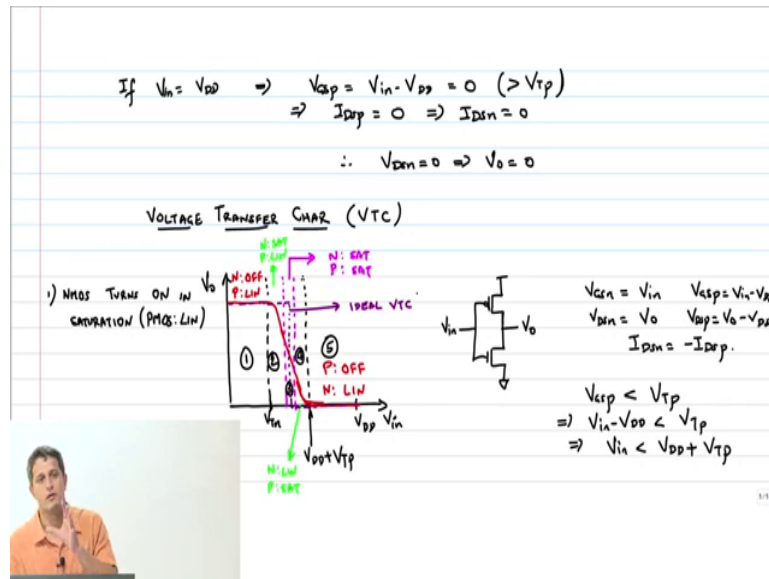 If Vin = VDD ⇒ VGSp = Vin - VDD = 0 (> VTp)
⇒ IDSp = 0 ⇒ IDSn = 0
∴ VDSn = 0 ⇒ Vo = 0
VOLTAGE TRANSFER CHAR (VTC)
1) NMOS TURNS ON IN
SATURATION (PMOS: LIN)
N: SAT
P: LIN
N: SAT
P: SAT
Vo
N: OFF
P: LIN
IDEAL VTC
1
2
3
4
5
P: OFF
N: LIN
VTn
VDD
Vin
VDD+VTp
N: LIN
P: SAT
Vin
Vo
VGSn = Vin VGSp = Vin-VD
VDSn = Vo VDSp = Vo-VD
IDSn = -IDSp.
VGSp < VTp
⇒ Vin-VDD < VTp
⇒ Vin < VDD + VTp